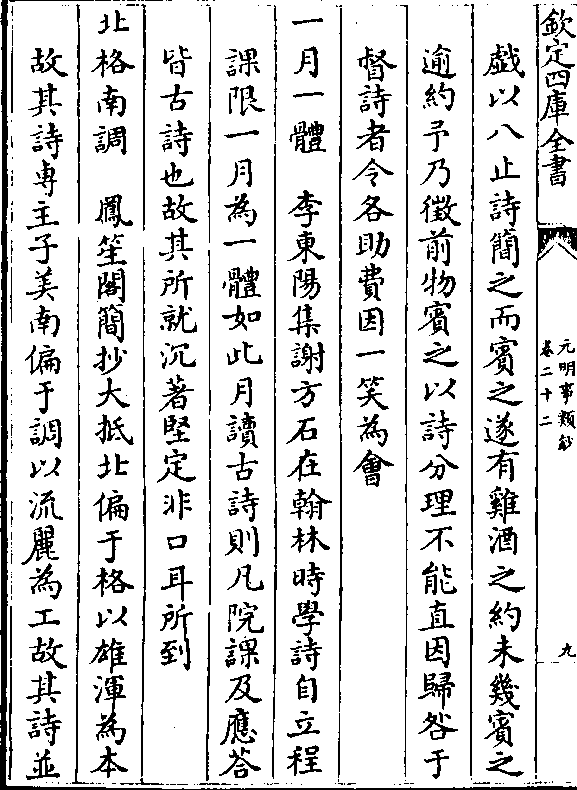 欽定四庫全書
元明事類鈔
卷二十二
九
戯以八止詩簡之而賓之遂有雞酒之約未幾賓之
逾約予乃徵前物賓之以詩分理不能直因歸咎于
督詩者令各助費因一笑為會
一月一體　李東陽集謝方石在翰林時學詩自立程
課限一月為一體如此月讀古詩則凡院課及應答
皆古詩也故其所就沉著堅定非口耳所到
北格南調　鳳笙閣簡抄大抵北偏于格以雄渾為本
故其詩専主子美南偏于調以流麗為工故其詩並